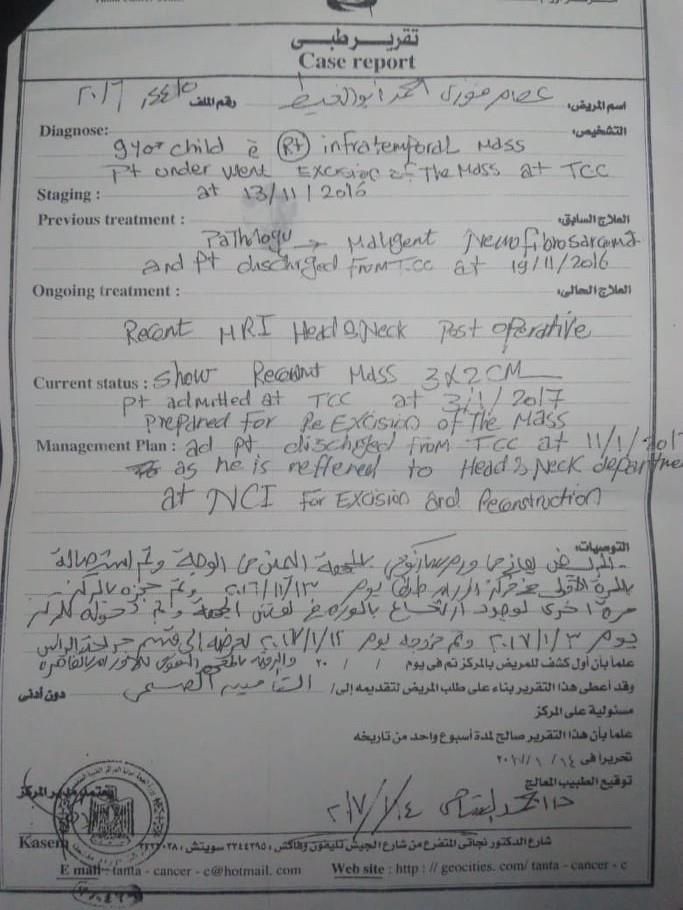 تقرير طبي
Case report
اسم المريض: عصام فوزى احمد ابوالغيط رقم الملف
التشخيص:
Diagnose:
9 yor child è (Rt) infratemporal Mass
pt under went Excision of The Mass at TCC
Staging : at 13/11/2016
Previous treatment : العلاج السابق:
Pathology → Maligent Neurofibrosarcoma
and pt discharged From TCC at 19/11/2016
Ongoing treatment : العلاج الحالى:
Recent MRI Head & Neck Post operative
Current status : show Recurrent Mass 3x2 CM
pt admitted at TCC at 3/1/2017
prepared for Re Excision of The Mass
Management Plan : ad pt discharged from TCC at 11/1/2017
as he is reffered to Head & Neck departme
at NCI For Excision and Reconstruction
التوصيات:
المريض يعانى من ورم ساركومى بالجهة اليمنى من الوجة وتم استئصالة
بالمرة الأولى فى مركز اورام طنطا يوم ٢٠١٦/١١/١٣ وتم حجزه بالمركز
مرة اخرى لوجود ارتجاع بالورم فى نفس الجهة وتم دخوله المركز
يوم ٢٠١٧/١/٣ وتم خروجه يوم ٢٠١٧/١/١٢ لعرضه إلى قسم جراحة الراس
علما بأن أول كشف للمريض بالمركز تم فى يوم / / ٢٠ والرقبة بالمعهد القومى للاورام بالقاهرة
وقد أعطى هذا التقرير بناء على طلب المريض لتقديمه إلى/ التأمين الصحى دون أدنى
مسئولية على المركز
علما بأن هذا التقرير صالح لمدة أسبوع واحد من تاريخه
تحريرا فى ١٤ / ١ /
توقيع الطبيب المعالج
يعتمد مدير المركز
شارع الدكتور نجاتى المتفرع من شارع الجيش تليفون وفاكس
Kasem
E mail : tanta - cancer - c@hotmail. com Web site : http : // geocities. com/ tanta - cancer - c